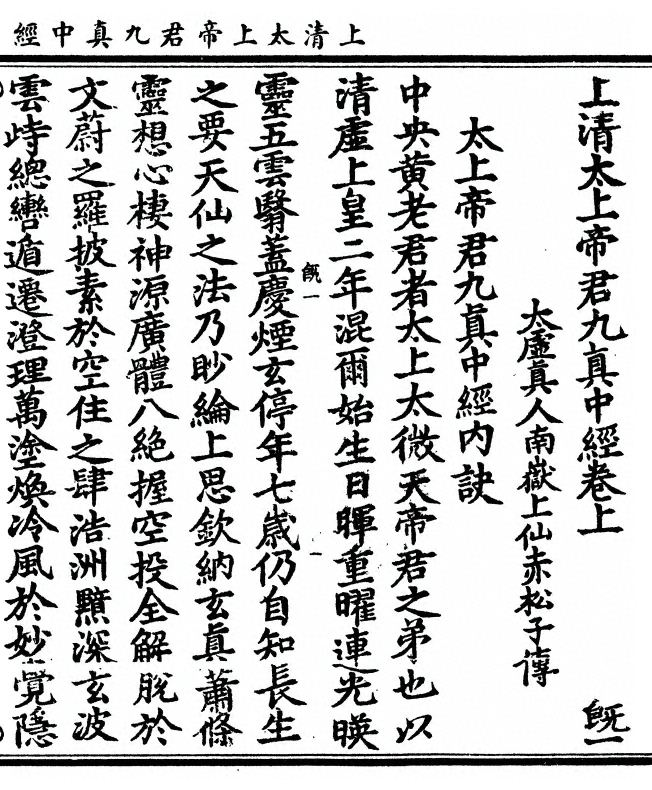 上清太上帝君九真中經
上清太上帝君九真中經卷上
既一
太虛真人南嶽上仙赤松子傳
太上帝君九真中經内訣
中央黃老君者太上太微天帝君之弟也以
清虛上皇二年混爾始生日暉重曜連光暎
既一
靈五雲翳蓋慶煙玄停年七歲仍自知長生
之要天仙之法乃眇綸上思欽納玄真蕭條
靈想心棲神源廣體八絕握空投全解脫於
文蔚之羅披素於空住之肆浩洲顥深玄波
雲峙總轡遁遷澄理萬塗煥泠風於妙覺隱